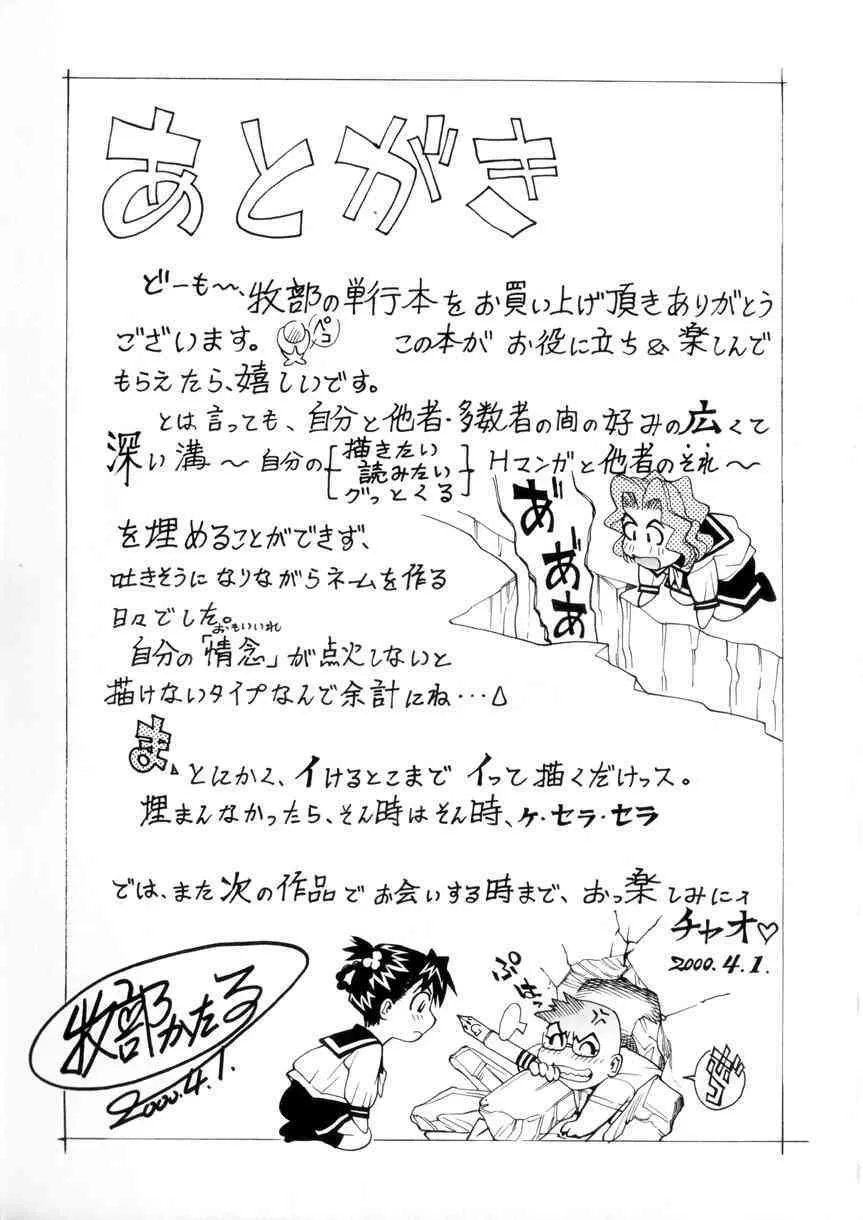 あとがき
どーも〜、牧部の単行本をお買い上げ頂きありがとう
ございます。 ペコ この本が お役に立ち & 楽しんで
もらえたら、嬉しいです。
とは言っても、自分と他者・多数者の間の好みの広くて
深い溝〜自分の[描きたい
読みたい
グッとくる]Hマンガと他者のそれ〜
を埋めることができず、
吐きそうになりながらネームを作る
日々でした。
おもいいれ
自分の「情念」が点火しないと
描けないタイプなんで余計にね・・・
あ゛
あ゛あ゛
ま、とにかく、イけるとこまで イって描くだけっス。
埋まんなかったら、そん時はそん時、ケ・セラ・セラ
では、また次の作品で お会いする時まで、おっ楽しみにィ
チャオ♡
2000.4.1.
ぷはー
牧部かたる
2000.4.1.